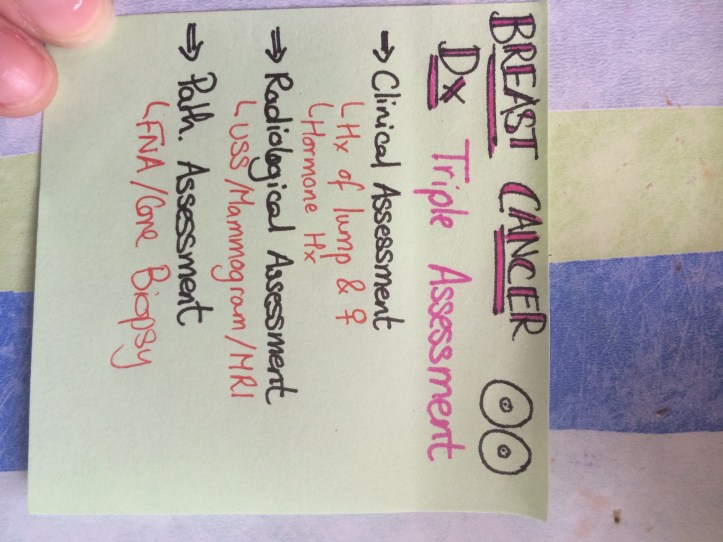 BREAST CANCER
Dx Triple Assessment
⇒ Clinical Assessment
↳ Hx of lump & ♀
↳ Hormone Hx
⇒ Radiological Assessment
↳ USS/Mammogram/MRI
⇒ Path. Assessment
↳ FNA/Core Biopsy